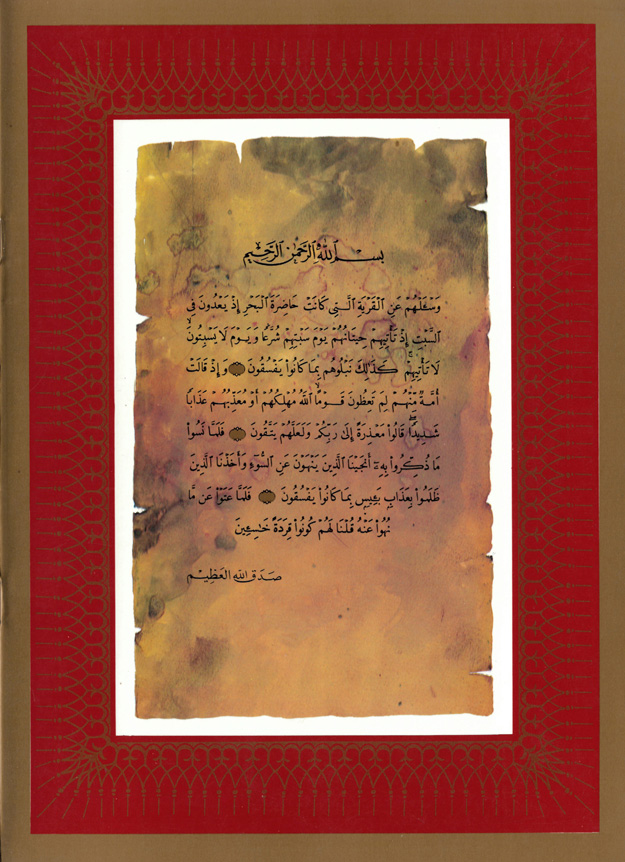 بسم الله الرحمن الرحيم
وَسْـَٔلْهُمْ عَنِ ٱلْقَرْيَةِ ٱلَّتِى كَانَتْ حَاضِرَةَ ٱلْبَحْرِ إِذْ يَعْدُونَ فِى
ٱلسَّبْتِ إِذْ تَأْتِيهِمْ حِيتَانُهُمْ يَوْمَ سَبْتِهِمْ شُرَّعًا وَيَوْمَ لَا يَسْبِتُونَ
لَا تَأْتِيهِمْ ۚ كَذَٰلِكَ نَبْلُوهُم بِمَا كَانُوا۟ يَفْسُقُونَ وَإِذْ قَالَتْ
أُمَّةٌ مِّنْهُمْ لِمَ تَعِظُونَ قَوْمًا ۙ ٱللَّهُ مُهْلِكُهُمْ أَوْ مُعَذِّبُهُمْ عَذَابًا
شَدِيدًا ۖ قَالُوا۟ مَعْذِرَةً إِلَىٰ رَبِّكُمْ وَلَعَلَّهُمْ يَتَّقُونَ فَلَمَّا نَسُوا۟
مَا ذُكِّرُوا۟ بِهِۦٓ أَنجَيْنَا ٱلَّذِينَ يَنْهَوْنَ عَنِ ٱلسُّوٓءِ وَأَخَذْنَا ٱلَّذِينَ
ظَلَمُوا۟ بِعَذَابٍۭ بَـِٔيسٍۭ بِمَا كَانُوا۟ يَفْسُقُونَ فَلَمَّا عَتَوْا۟ عَن مَّا
نُهُوا۟ عَنْهُ قُلْنَا لَهُمْ كُونُوا۟ قِرَدَةً خَـٰسِـِٔينَ
صدق الله العظيم